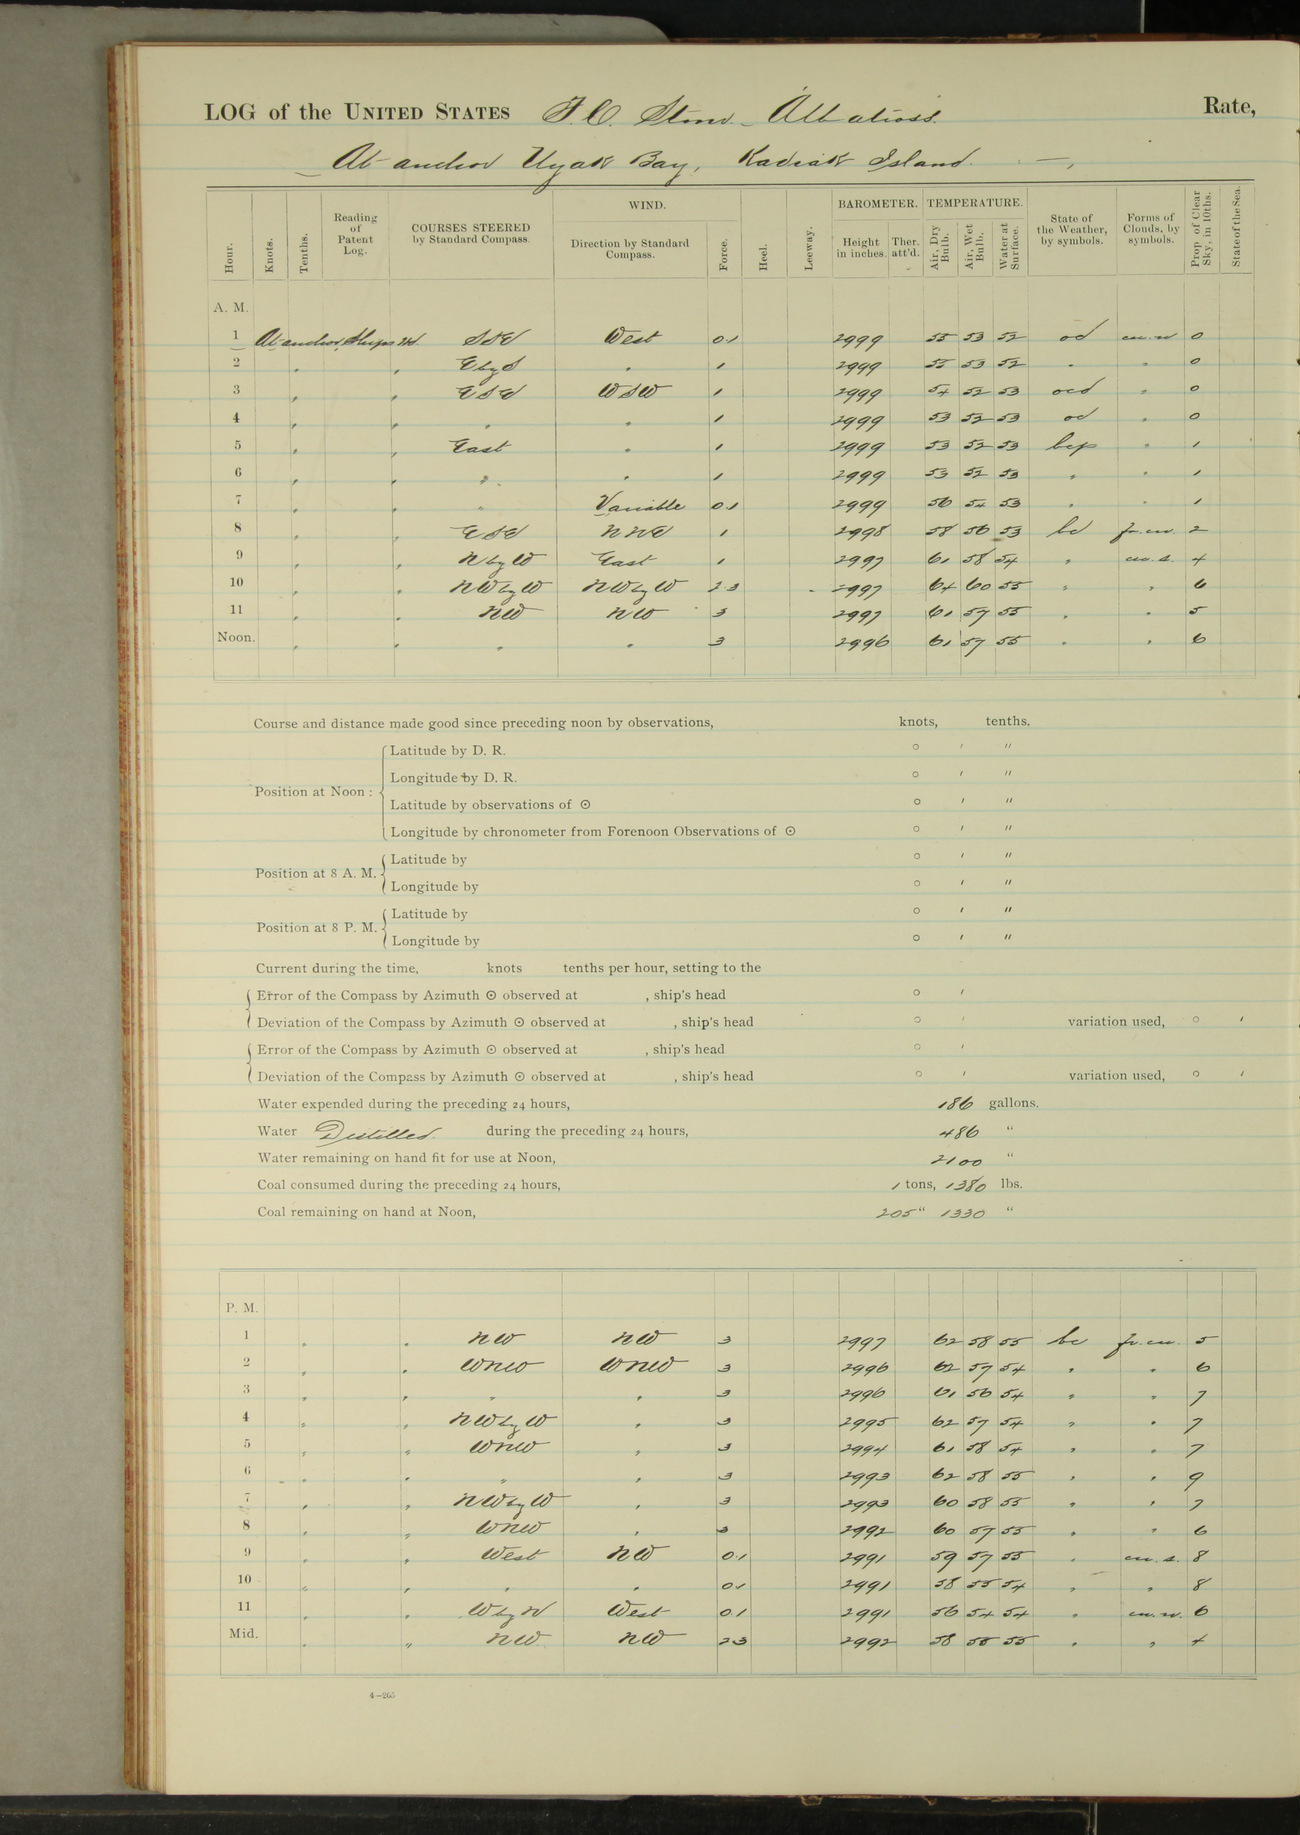 LOG of the UNITED STATES F.C. Stmr. Albatross. Rate,
At anchor Uyak Bay, Kadiak Island.
Hour. Knots. Tenths. Reading of Patent Log. COURSES STEERED by Standard Compass. WIND. Direction by Standard Compass. Force. Heel. Leeway. BAROMETER. Height in inches. Ther. att'd. TEMPERATURE. Air, Dry Bulb. Air, Wet Bulb. Water at Surface. State of the Weather, by symbols. Forms of Clouds, by symbols. Prop. of Clear Sky, in 10ths. State of the Sea.
A. M.
1 At anchor, Ships Hd. SSE West 0.1 2999 55 53 52 od cu.n 0
2 " " E by S " 1 2999 55 53 52 " " 0
3 " " ESE WSW 1 2999 54 52 53 ocd " 0
4 " " " " 1 2999 53 52 53 od " 0
5 " " East " 1 2999 53 52 53 bcp " 1
6 " " " " 1 2999 53 52 53 " " 1
7 " " " Variable 0.1 2999 56 54 53 " " 1
8 " " ESE NNE 1 2998 58 56 53 bc fr.cu. 2
9 " " N by W East 1 2997 61 58 54 " cu.s. 4
10 " " NW by W NW by W 2 3 2997 64 60 55 " " 6
11 " " NW NW 3 2997 61 57 55 " " 5
Noon. " " " " 3 2996 61 57 55 " " 6
Course and distance made good since preceding noon by observations, knots, tenths.
Position at Noon :
Latitude by D. R. ° ′ ″
Longitude by D. R. ° ′ ″
Latitude by observations of ☉ ° ′ ″
Longitude by chronometer from Forenoon Observations of ☉ ° ′ ″
Position at 8 A. M.
Latitude by ° ′ ″
Longitude by ° ′ ″
Position at 8 P. M.
Latitude by ° ′ ″
Longitude by ° ′ ″
Current during the time, knots tenths per hour, setting to the
Error of the Compass by Azimuth ☉ observed at , ship's head ° ′
Deviation of the Compass by Azimuth ☉ observed at , ship's head ° ′ variation used, ° ′
Error of the Compass by Azimuth ☉ observed at , ship's head ° ′
Deviation of the Compass by Azimuth ☉ observed at , ship's head ° ′ variation used, ° ′
Water expended during the preceding 24 hours, 186 gallons.
Water Distilled. during the preceding 24 hours, 486 "
Water remaining on hand fit for use at Noon, 2100 "
Coal consumed during the preceding 24 hours, 1 tons, 1380 lbs.
Coal remaining on hand at Noon, 205 " 1330 "
P. M.
1 " " NW NW 3 2997 62 58 55 bc fr.cu. 5
2 " " WNW WNW 3 2996 62 57 54 " " 6
3 " " " " 3 2996 61 56 54 " " 7
4 " " NW by W " 3 2995 62 57 54 " " 7
5 " " WNW " 3 2994 61 58 54 " " 7
6 " " " " 3 2993 62 58 55 " " 9
7 " " NW by W " 3 2993 60 58 55 " " 7
8 " " WNW " 3 2992 60 57 55 " " 6
9 " " West NW 0.1 2991 59 57 55 " cu.s. 8
10 " " " " 0.1 2991 58 55 54 " " 8
11 " " W by N West 0.1 2991 56 54 54 " cu.n. 6
Mid. " " NW NW 2 3 2992 58 55 55 " " 4
4—265